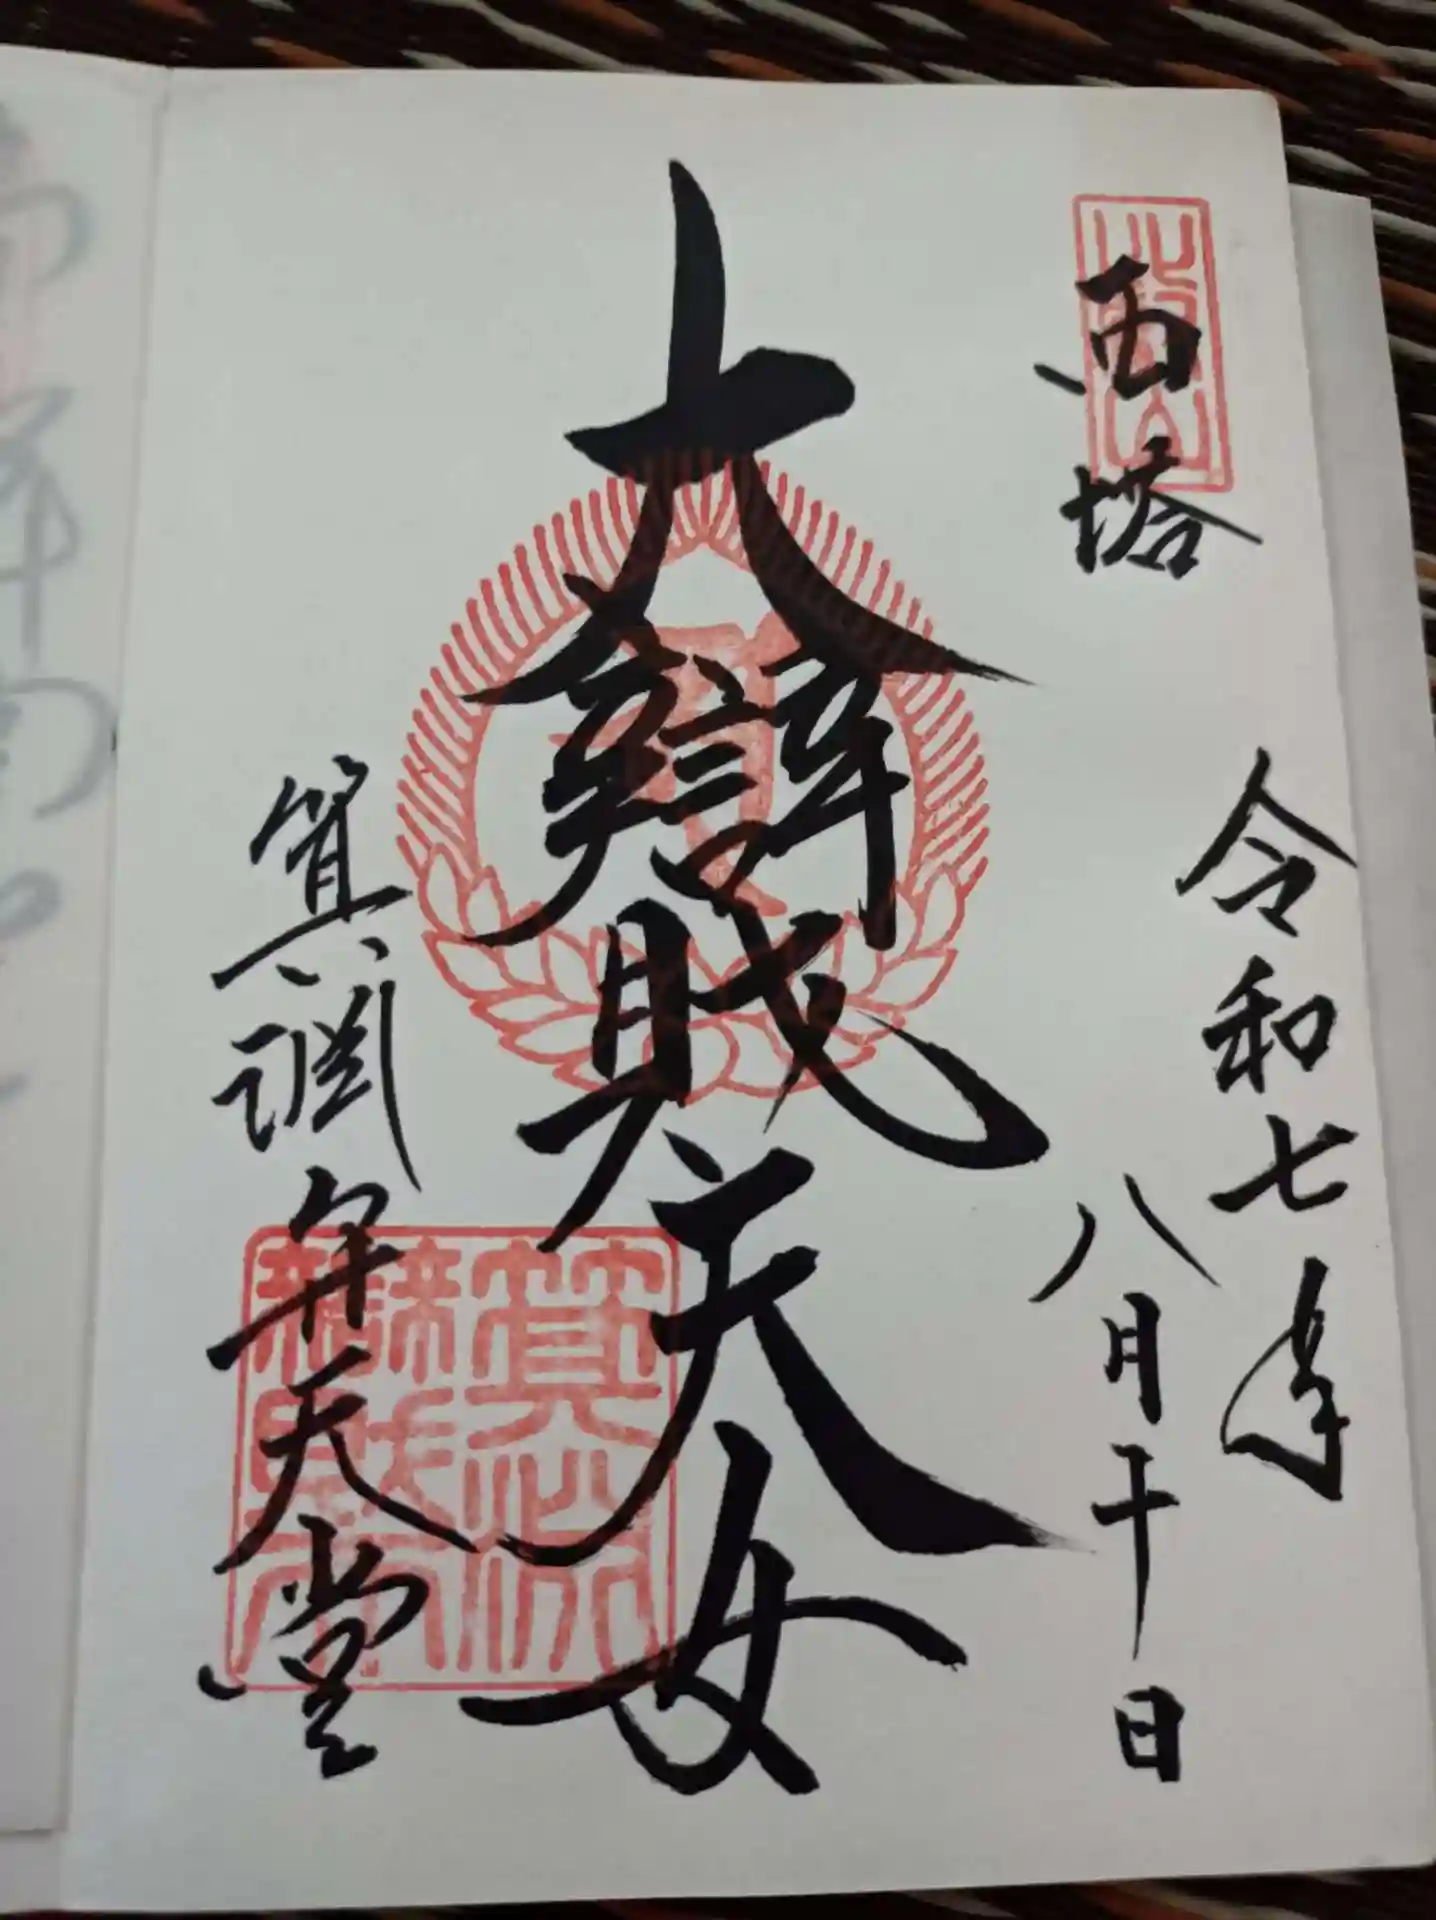 比叡山
西塔
令和七年
八月十日
大辯財天女
箕淵弁天堂
箕淵
辯財天